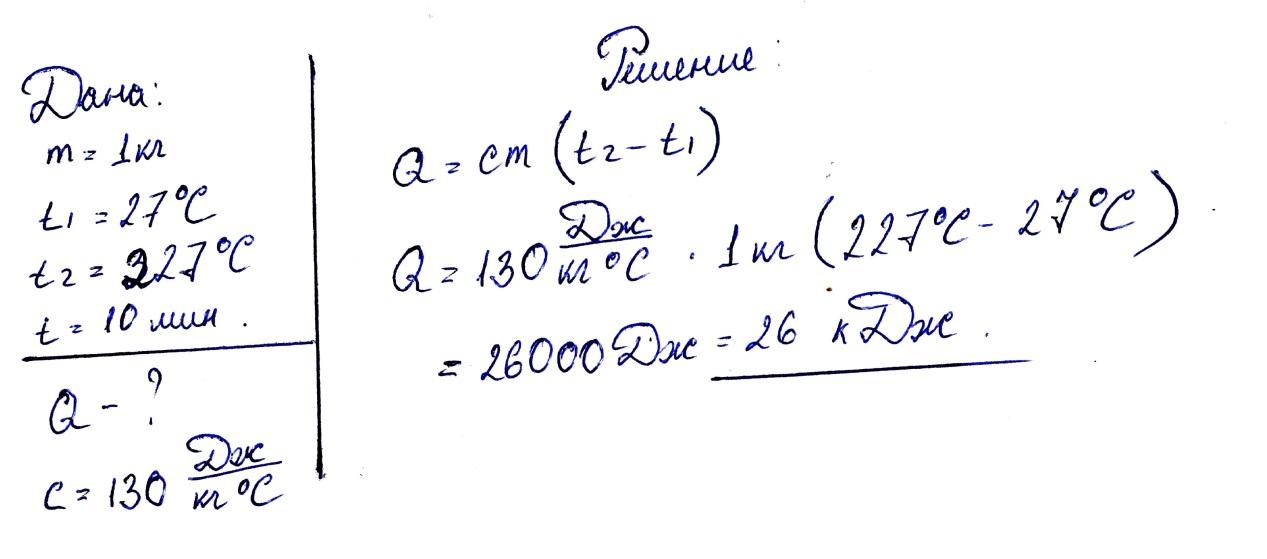 Дана:
m = 1 кг
t₁ = 27°C
t₂ = 327°C
t = 10 мин.
Q - ?
c = 130 Дж/кг °C
Решение:
Q = cm (t₂ - t₁)
Q = 130 Дж/кг °C · 1 кг (227°C - 27°C)
= 26000 Дж = 26 кДж.